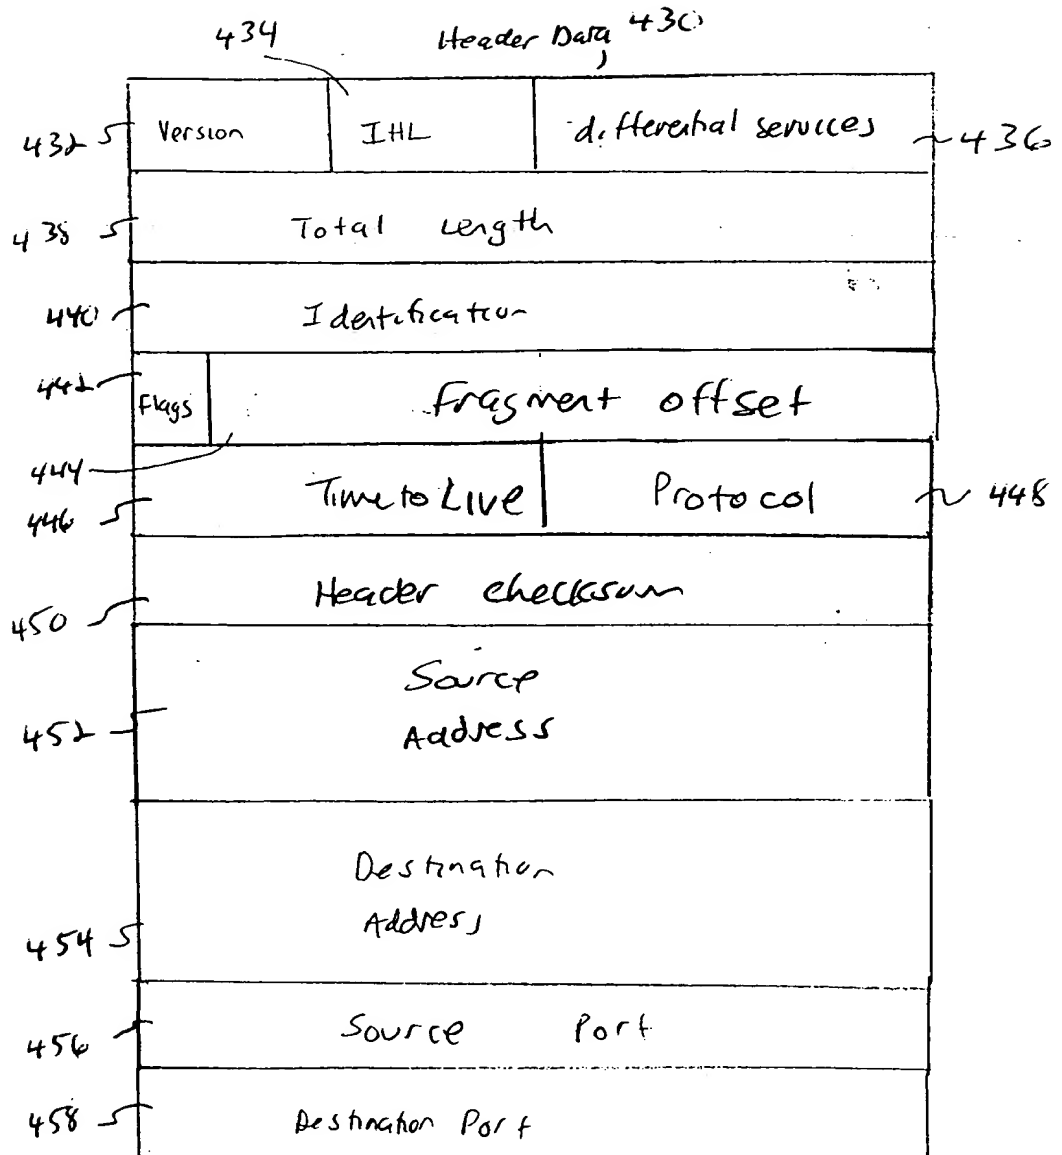 434 Header Data 430
432 Version IHL differential services 436
438 Total Length
440 Identification
442 Flags Fragment offset
444
446 Time to Live Protocol 448
450 Header checksum
Source
452 Address
Destination
454 Address
456 Source Port
458 Destination Port